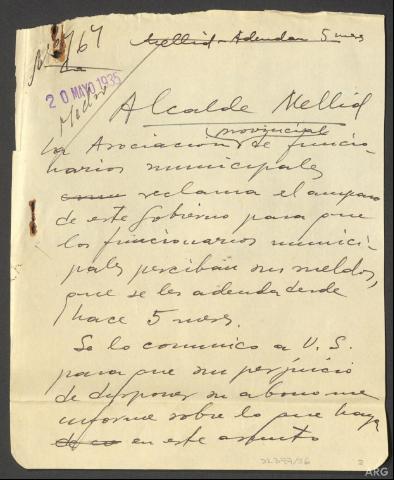 Nº 767
Mellid - Adeudan 5 mes
20 MAYO 1935
Alcalde Mellid
provincial
La Asociacion de funcio-
narios municipales
reclama el amparo
de este Gobierno para que
los funcionarios munici-
pales perciban sus sueldos,
que se les adeuda desde
hace 5 meses.
Se lo comunico a V. S.
para que sin perjuicio
de disponer su abono me
informe sobre lo que haya
en este asunto
ARG